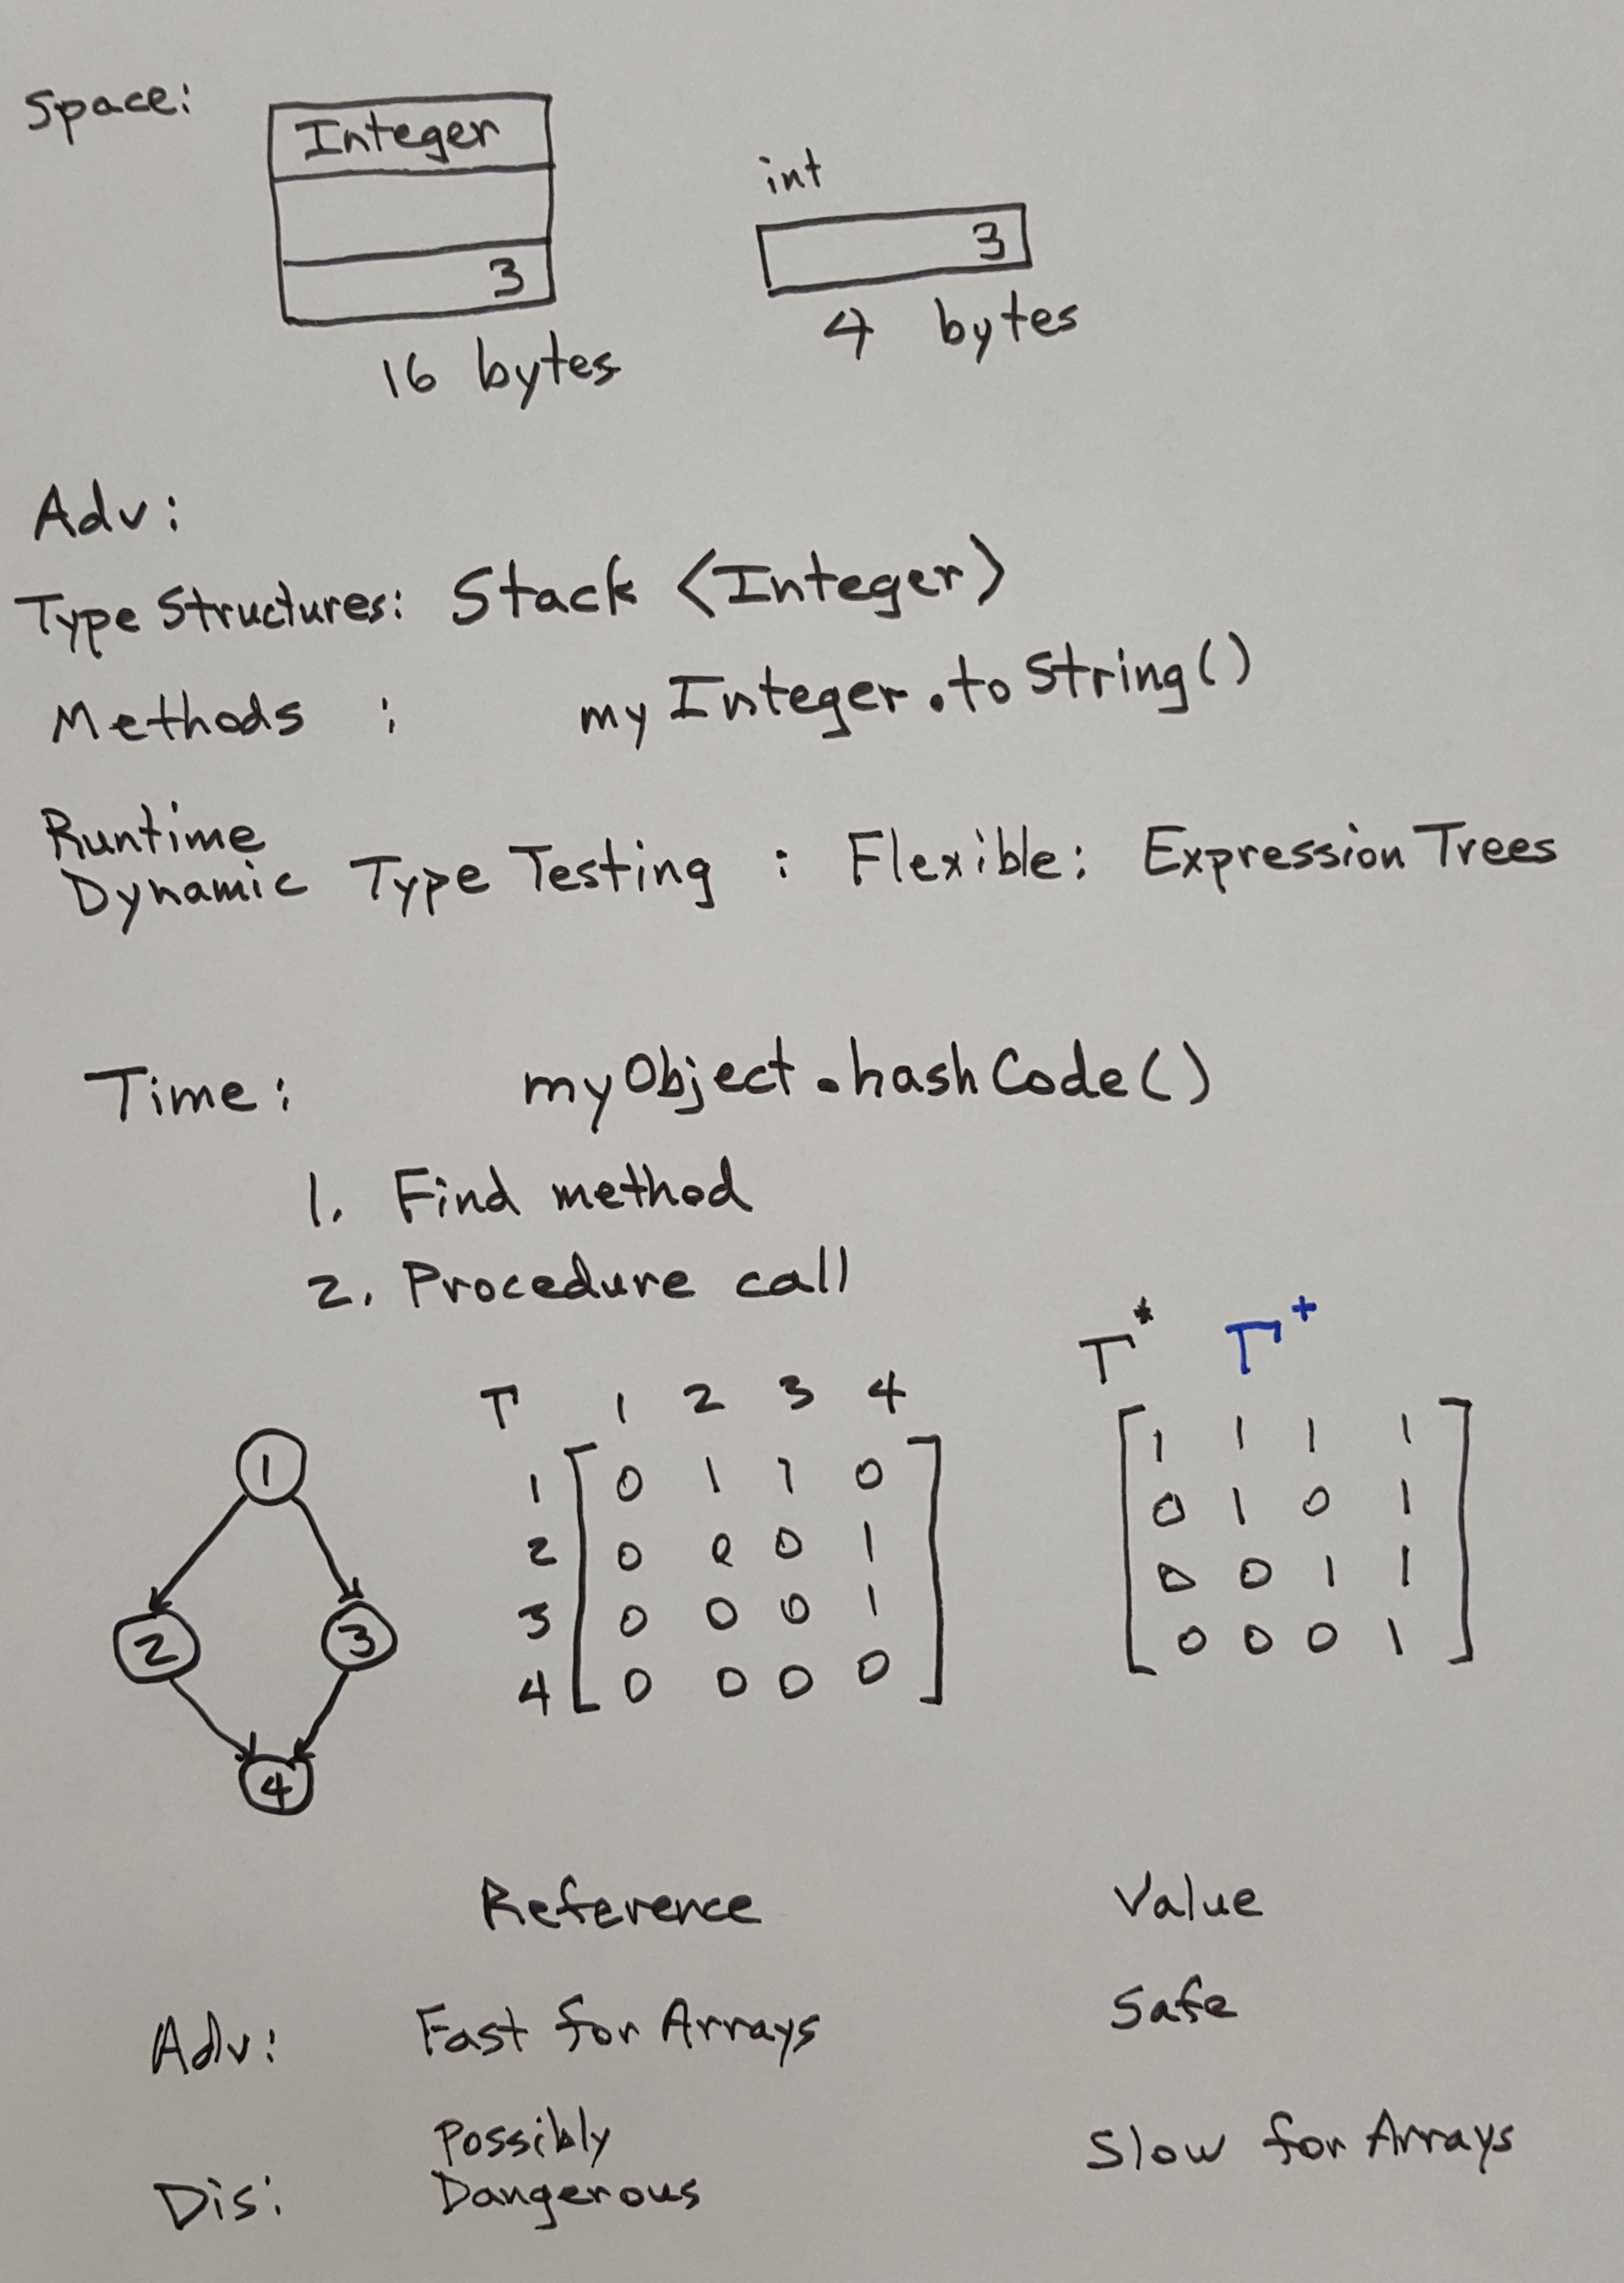 Space:
Integer
3
16 bytes
int
3
4 bytes
Adv:
Type Structures: Stack <Integer>
Methods : myInteger.toString()
Runtime
Dynamic Type Testing : Flexible: Expression Trees
Time: myObject.hashCode()
1. Find method
2. Procedure call
1
2 3
4
T 1 2 3 4
1 0 1 1 0
2 0 0 0 1
3 0 0 0 1
4 0 0 0 0
T* T+
1 1 1 1
0 1 0 1
0 0 1 1
0 0 0 1
Reference Value
Adv: Fast for Arrays Safe
Possibly
Dis: Dangerous Slow for Arrays